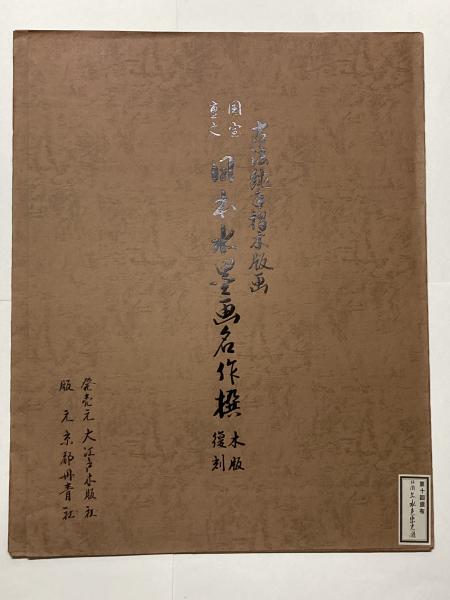 古法純手摺木版画
国宝
重文
日本水墨画名作撰
木版
復刻
発売元 大江戸木版社
版元 京都丹青社
第十回頒布